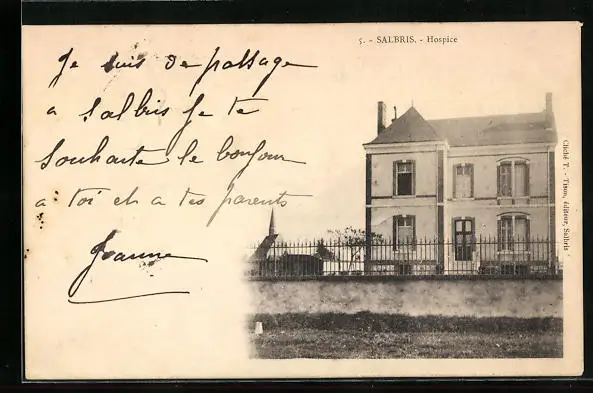 5. - SALBRIS. - Hospice
Je suis de passage
a Salbris Je te
souhaite le bonjour
a toi et a tes parents
Jeanne
Cliché T. - Tison, éditeur, Salbris